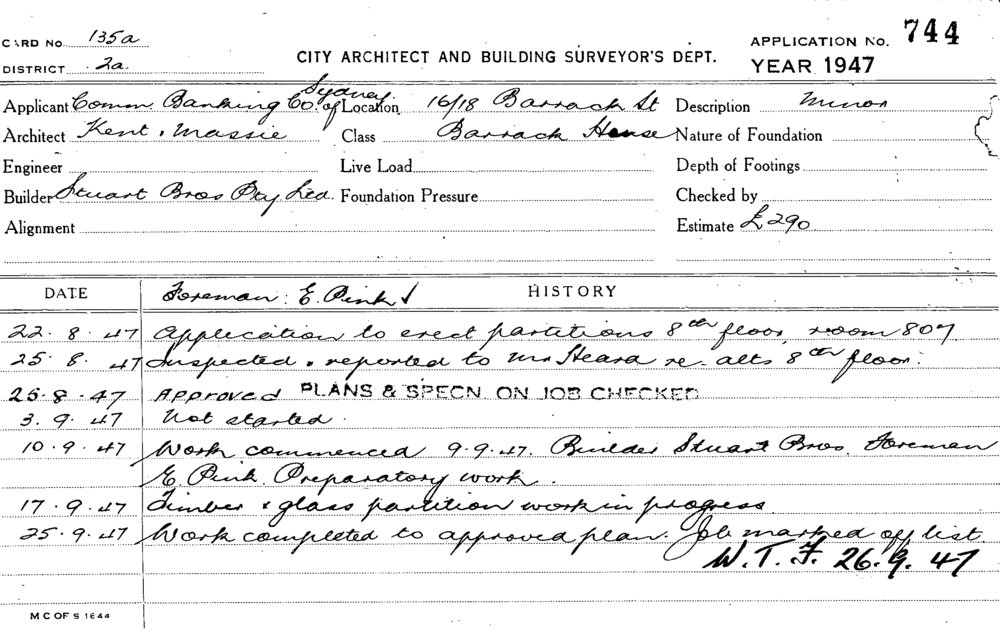 CARD No. 135a
DISTRICT 2a.
CITY ARCHITECT AND BUILDING SURVEYOR'S DEPT.
APPLICATION No. 744
YEAR 1947
Applicant Comm. Banking Co. of Sydney Location 16/18 Barrack St Description Minor
Architect Kent & Massie Class Barrack House Nature of Foundation
Engineer Live Load Depth of Footings
Builder Stuart Bros Pty Ltd. Foundation Pressure Checked by
Alignment Estimate £290
DATE Foreman: E. Pink HISTORY
22.8.47 Application to erect partitions 8th floor room 807
25.8.47 Inspected & reported to Mr re- alts 8th floor.
25.8.47 Approved PLANS & SPECN ON JOB CHECKED
3.9.47 Not started.
10.9.47 Work commenced 9.9.47. Builder Stuart Bros. Foreman
E Pink. Preparatory work.
17.9.47 Timber & glass partition work in progress
25.9.47 Work completed to approved plan. Job marked off list
W.T.F. 26.9.47
M C OF S 1644